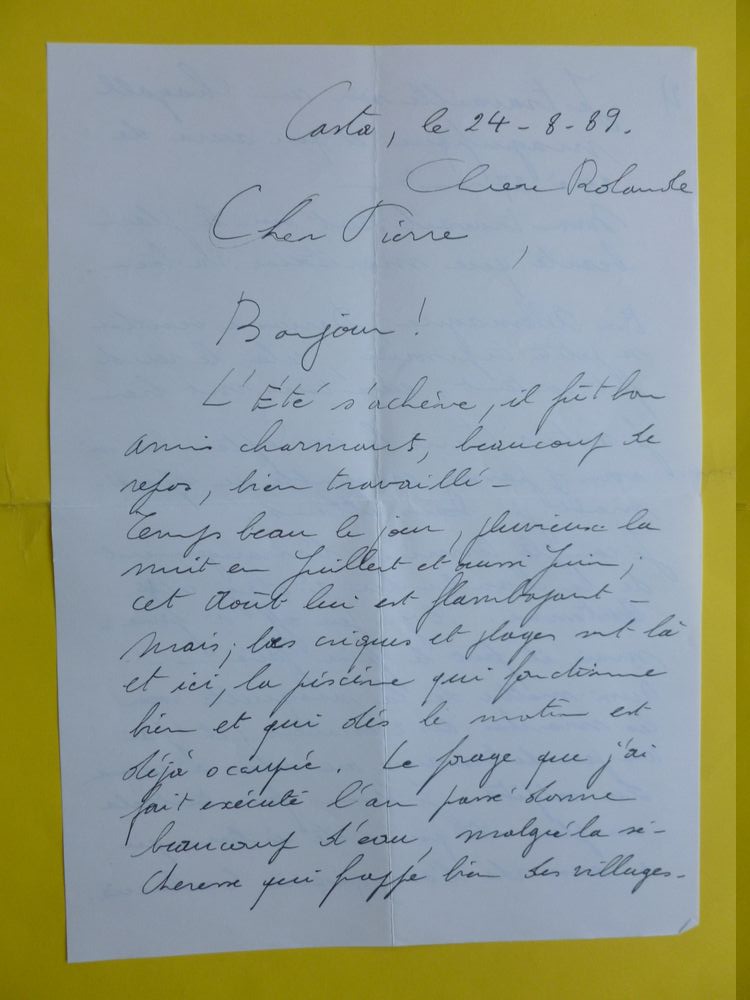 Casta, le 24-8-89.
Chere Rolande
Cher Pierre,
Bonjour !
L'Été s'achève, il fût bon
amis charmants, beaucoup de
repos, bien travaillé -
Temps beau le jour, pluvieux la
nuit en Juillet et aussi Juin ;
cet Août lui est flamboyant -
Mais, les criques et plages sont là
et ici, la piscine qui fonctionne
bien et qui dès le matin est
déjà occupée. Le forage que j'ai
fait exécuté l'an passé donne
beaucoup d'eau, malgré la sé-
cheresse qui frappe bien des villages.